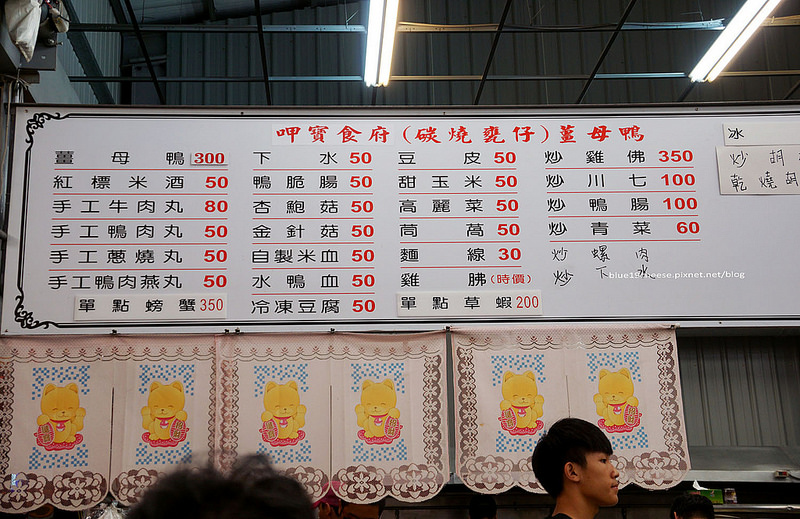 呷寶食府(碳燒甕仔)薑母鴨
薑母鴨 300
紅標米酒 50
手工牛肉丸 80
手工鴨肉丸 50
手工蔥燒丸 50
手工鴨肉燕丸 50
單點螃蟹 350
下水 50
鴨脆腸 50
杏鮑菇 50
金針菇 50
自製米血 50
水鴨血 50
冷凍豆腐 50
豆皮 50
甜玉米 50
高麗菜 50
茼萵 50
麵線 30
雞胇(時價)
單點草蝦 200
炒雞佛 350
炒川七 100
炒鴨腸 100
炒青菜 60
炒螺肉
炒下水
冰
炒胡
乾燒胡
blue19cheese.pixnet.net/blog